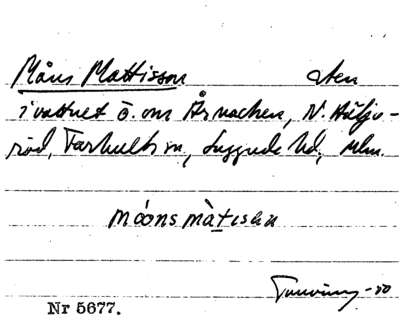 Måns Mattisson sten
i vattnet ö. om Årnacken, N. Hälju-
röd, Farhults sn, Luggude hd, Mlm.
måons màtisen
Nr 5677.